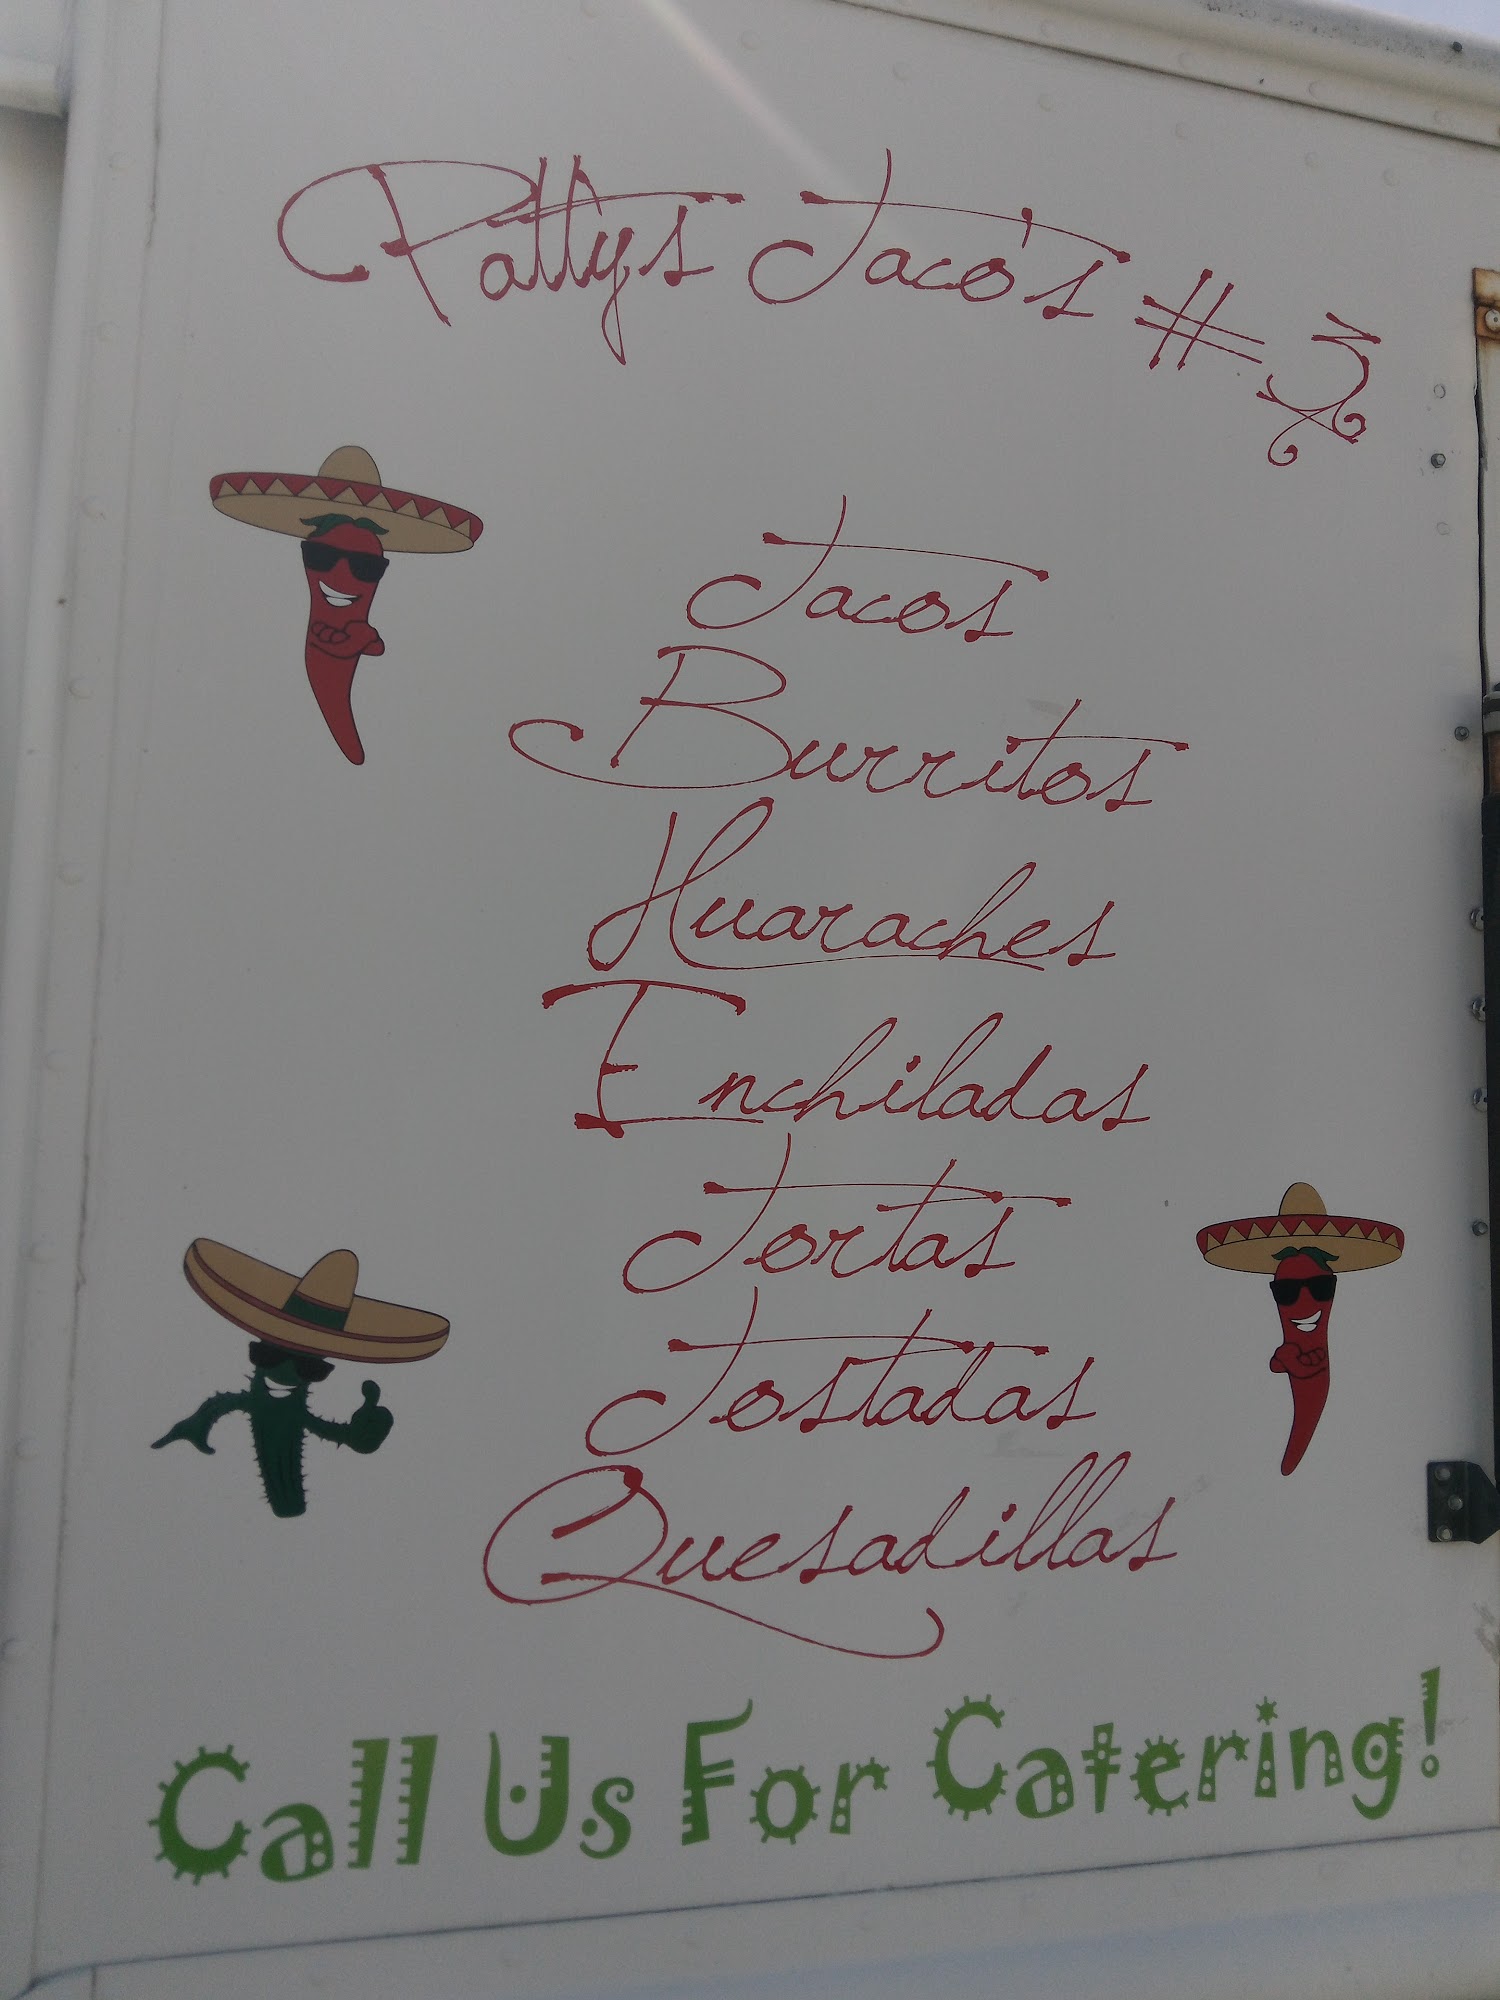 Pattys Taco's #3
Tacos
Burritos
Huaraches
Enchiladas
Tortas
Tostadas
Quesadillas
Call Us For Catering!